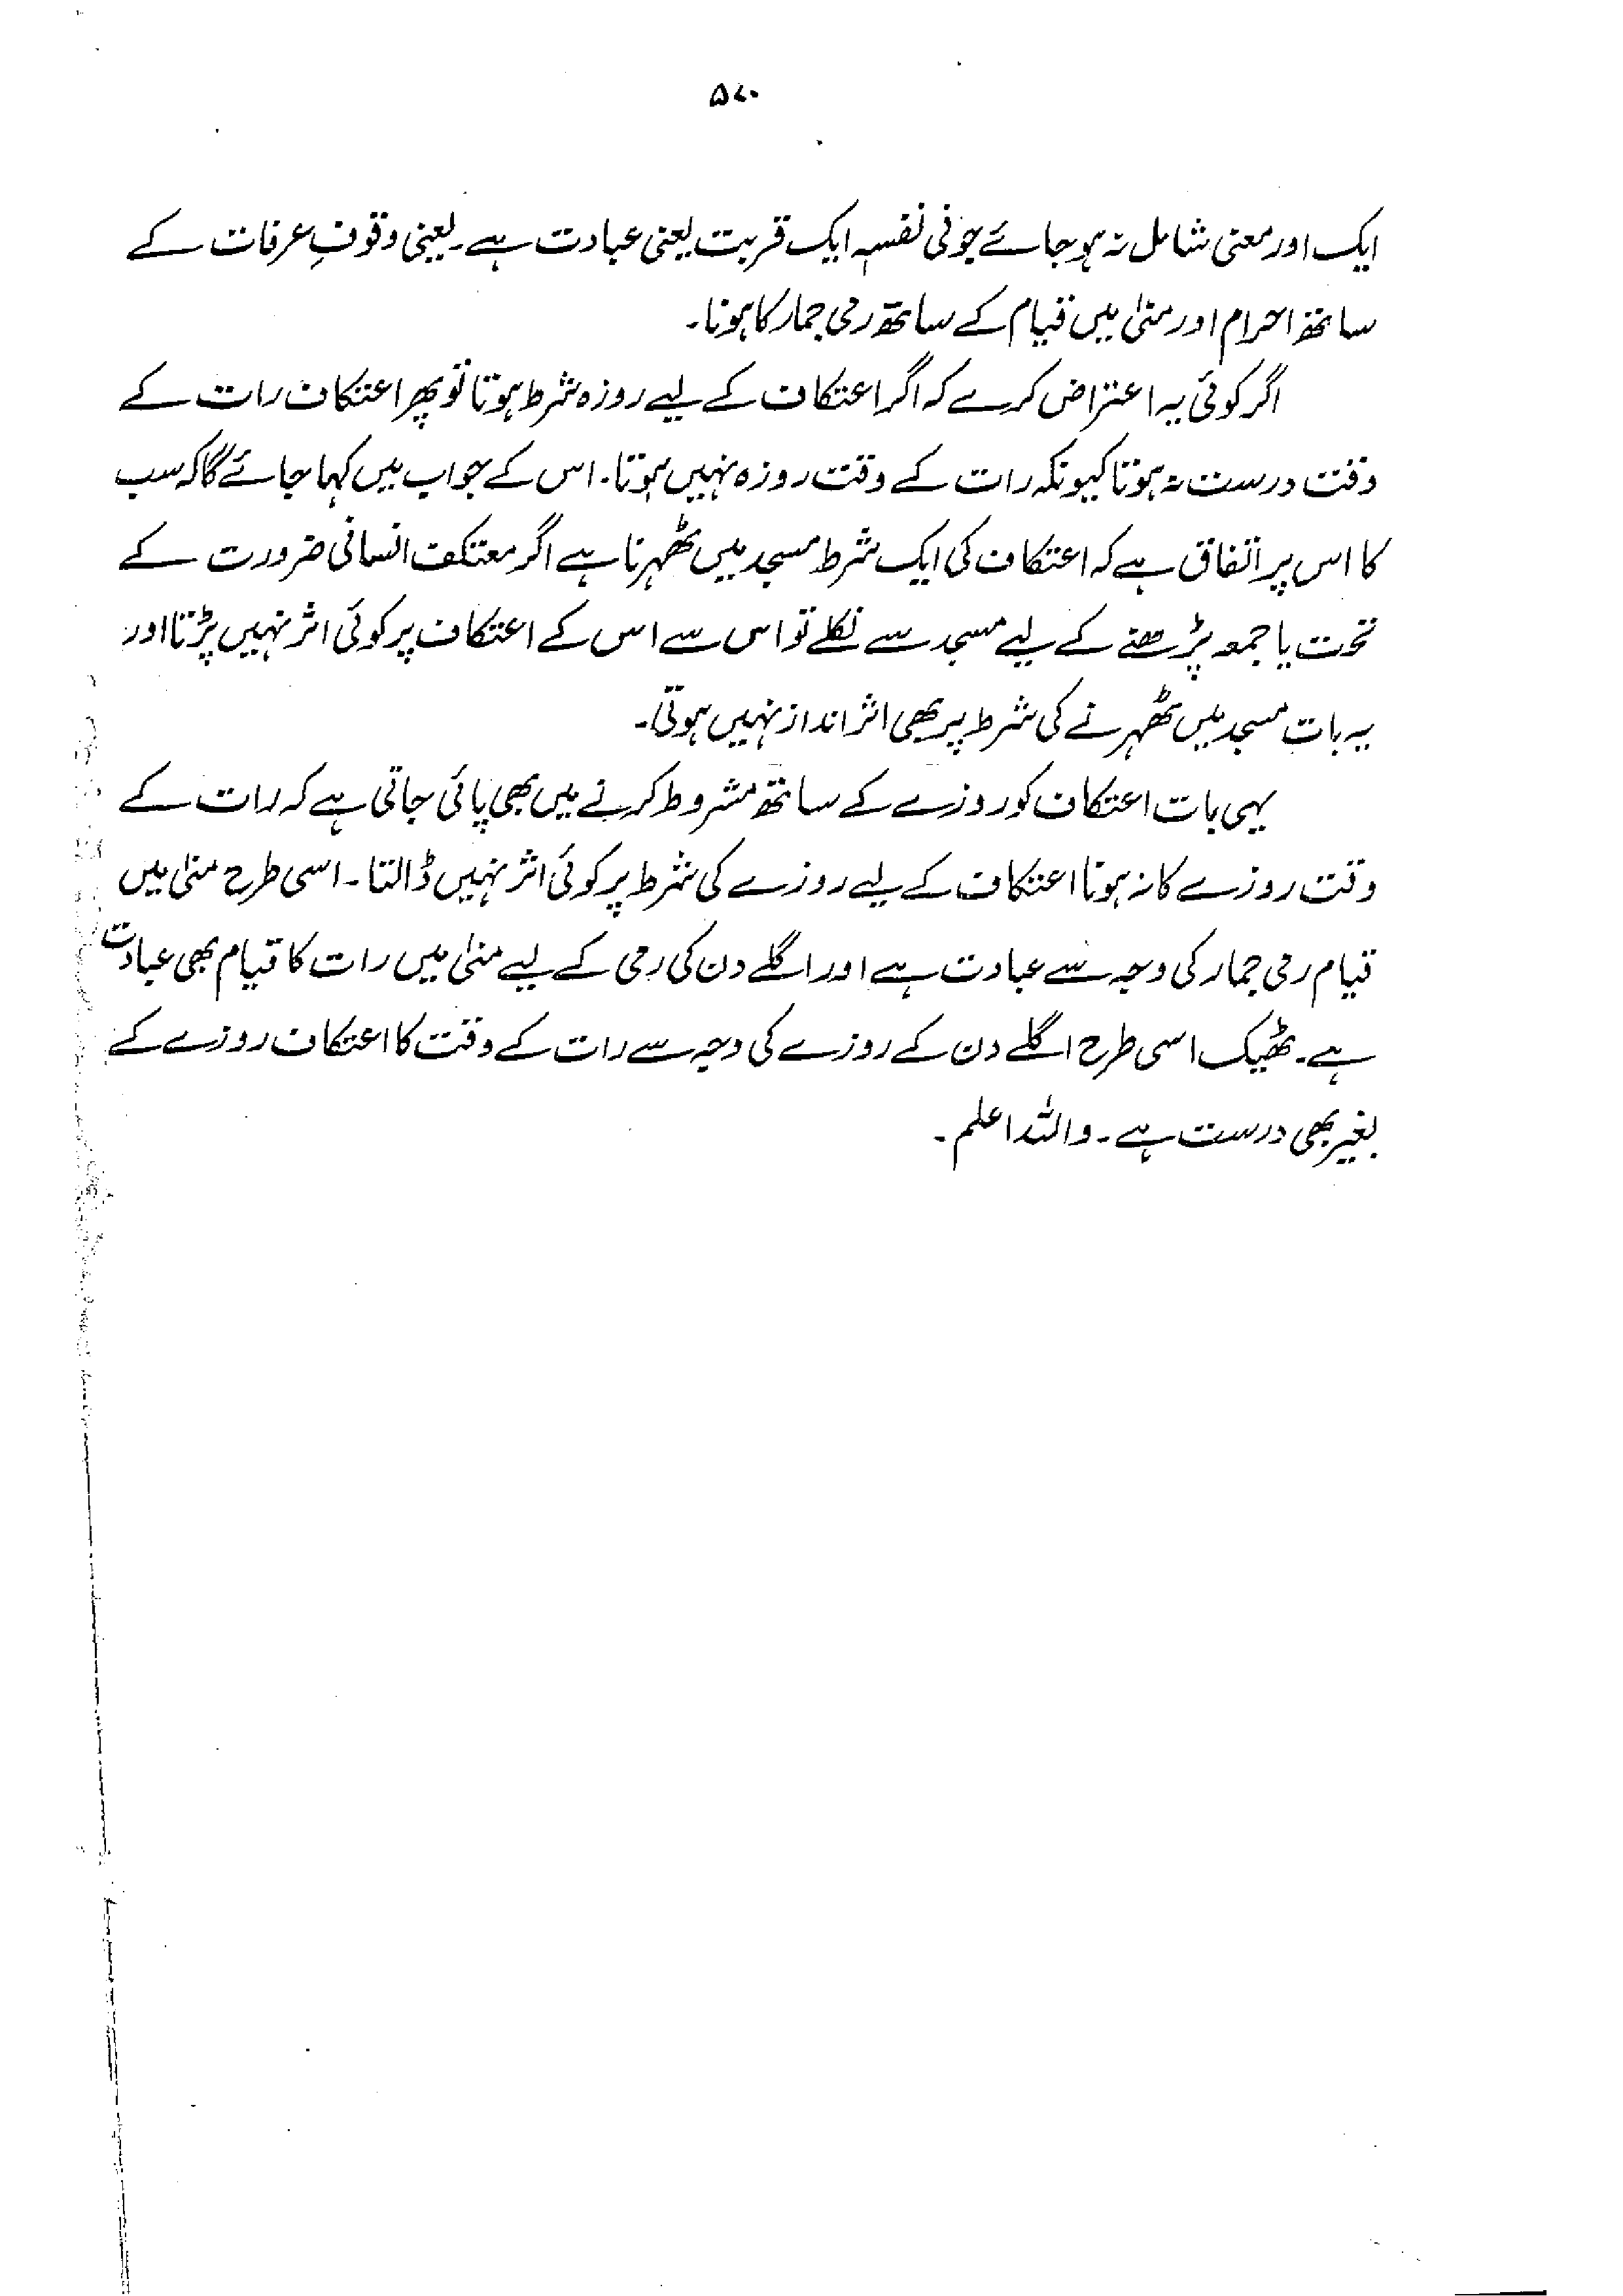 ۵۷۰
ایک اور معنی شامل نہ ہو جائے جو فی نفسہٖ ایک قربت یعنی عبادت ہے۔ یعنی وقوفِ عرفات کے
ساتھ احرام اور منیٰ میں قیام کے ساتھ رمی جمار کا ہونا۔
اگر کوئی یہ اعتراض کرے کہ اگر اعتکاف کے لیے روزہ شرط ہوتا تو پھر اعتکاف رات کے
وقت درست نہ ہوتا کیونکہ رات کے وقت روزہ نہیں ہوتا۔ اس کے جواب میں کہا جائے گا کہ سب
کا اس پر اتفاق ہے کہ اعتکاف کی ایک شرط مسجد میں ٹھہرنا ہے اگر معتکف انسانی ضرورت کے
تحت یا جمعہ پڑھنے کے لیے مسجد سے نکلے تو اس سے اس کے اعتکاف پر کوئی اثر نہیں پڑتا اور
یہ بات مسجد میں ٹھہرنے کی شرط پر بھی اثر انداز نہیں ہوتی۔
یہی بات اعتکاف کو روزے کے ساتھ مشروط کرنے میں بھی پائی جاتی ہے کہ رات کے
وقت روزے کا نہ ہونا اعتکاف کے لیے روزے کی شرط پر کوئی اثر نہیں ڈالتا۔ اسی طرح منیٰ میں
قیام رمی جمار کی وجہ سے عبادت ہے اور اگلے دن کی رمی کے لیے منیٰ میں رات کا قیام بھی عبادت
ہے۔ ٹھیک اسی طرح اگلے دن کے روزے کی وجہ سے رات کے وقت کا اعتکاف روزے کے
بغیر بھی درست ہے۔ واللہ اعلم۔